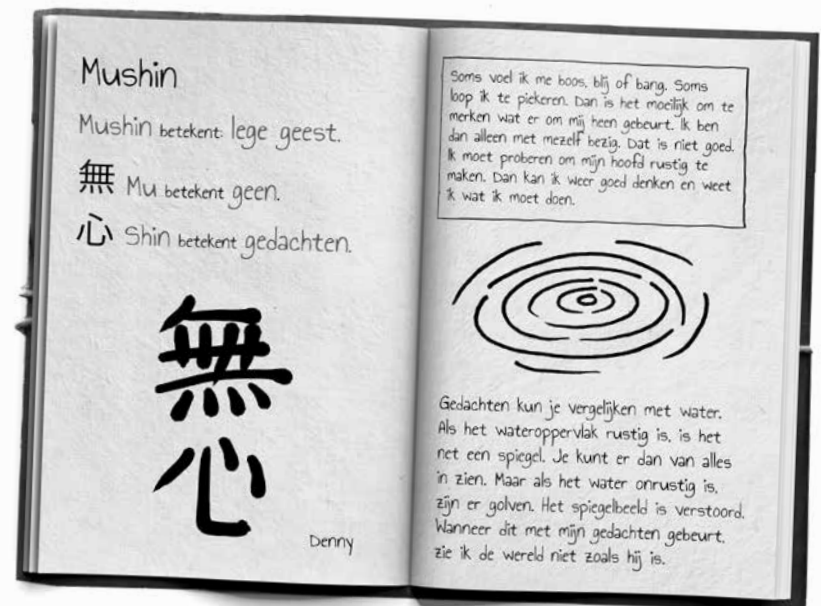 Mushin
Mushin betekent: lege geest.
無 Mu betekent geen.
心 Shin betekent gedachten.
無
心
Denny
Soms voel ik me boos, blij of bang. Soms
loop ik te piekeren. Dan is het moeilijk om te
merken wat er om mij heen gebeurt. Ik ben
dan alleen met mezelf bezig. Dat is niet goed.
Ik moet proberen om mijn hoofd rustig te
maken. Dan kan ik weer goed denken en weet
ik wat ik moet doen.
Gedachten kun je vergelijken met water.
Als het wateroppervlak rustig is, is het
net een spiegel. Je kunt er dan van alles
in zien. Maar als het water onrustig is,
zijn er golven. Het spiegelbeeld is verstoord.
Wanneer dit met mijn gedachten gebeurt,
zie ik de wereld niet zoals hij is.